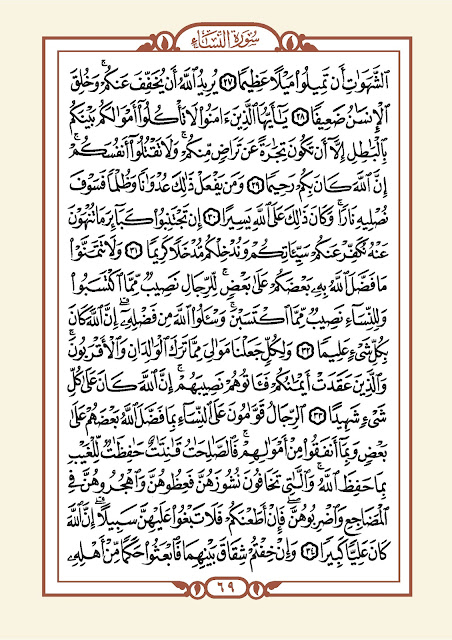 سُورَةُ النِّسَاءِ
الشَّهَوَاتِ أَن تَمِيلُوا۟ مَيْلًا عَظِيمًا ۝٢٧ يُرِيدُ ٱللَّهُ أَن يُخَفِّفَ عَنكُمْ ۚ وَخُلِقَ
ٱلْإِنسَٰنُ ضَعِيفًا ۝٢٨ يَـٰٓأَيُّهَا ٱلَّذِينَ ءَامَنُوا۟ لَا تَأْكُلُوٓا۟ أَمْوَٰلَكُم بَيْنَكُم
بِٱلْبَٰطِلِ إِلَّآ أَن تَكُونَ تِجَٰرَةً عَن تَرَاضٍ مِّنكُمْ ۚ وَلَا تَقْتُلُوٓا۟ أَنفُسَكُمْ ۚ
إِنَّ ٱللَّهَ كَانَ بِكُمْ رَحِيمًا ۝٢٩ وَمَن يَفْعَلْ ذَٰلِكَ عُدْوَٰنًا وَظُلْمًا فَسَوْفَ
نُصْلِيهِ نَارًا ۚ وَكَانَ ذَٰلِكَ عَلَى ٱللَّهِ يَسِيرًا ۝٣٠ إِن تَجْتَنِبُوا۟ كَبَآئِرَ مَا تُنْهَوْنَ
عَنْهُ نُكَفِّرْ عَنكُمْ سَيِّـَٔاتِكُمْ وَنُدْخِلْكُم مُّدْخَلًا كَرِيمًا ۝٣١ وَلَا تَتَمَنَّوْا۟
مَا فَضَّلَ ٱللَّهُ بِهِۦ بَعْضَكُمْ عَلَىٰ بَعْضٍ ۚ لِّلرِّجَالِ نَصِيبٌ مِّمَّا ٱكْتَسَبُوا۟
وَلِلنِّسَآءِ نَصِيبٌ مِّمَّا ٱكْتَسَبْنَ ۚ وَسْـَٔلُوا۟ ٱللَّهَ مِن فَضْلِهِۦٓ ۗ إِنَّ ٱللَّهَ كَانَ
بِكُلِّ شَىْءٍ عَلِيمًا ۝٣٢ وَلِكُلٍّ جَعَلْنَا مَوَٰلِىَ مِمَّا تَرَكَ ٱلْوَٰلِدَانِ وَٱلْأَقْرَبُونَ ۚ
وَٱلَّذِينَ عَقَدَتْ أَيْمَٰنُكُمْ فَـَٔاتُوهُمْ نَصِيبَهُمْ ۚ إِنَّ ٱللَّهَ كَانَ عَلَىٰ كُلِّ
شَىْءٍ شَهِيدًا ۝٣٣ ٱلرِّجَالُ قَوَّٰمُونَ عَلَى ٱلنِّسَآءِ بِمَا فَضَّلَ ٱللَّهُ بَعْضَهُمْ عَلَىٰ
بَعْضٍ وَبِمَآ أَنفَقُوا۟ مِنْ أَمْوَٰلِهِمْ ۚ فَٱلصَّٰلِحَٰتُ قَٰنِتَٰتٌ حَٰفِظَٰتٌ لِّلْغَيْبِ
بِمَا حَفِظَ ٱللَّهُ ۚ وَٱلَّٰتِى تَخَافُونَ نُشُوزَهُنَّ فَعِظُوهُنَّ وَٱهْجُرُوهُنَّ فِى
ٱلْمَضَاجِعِ وَٱضْرِبُوهُنَّ ۖ فَإِنْ أَطَعْنَكُمْ فَلَا تَبْغُوا۟ عَلَيْهِنَّ سَبِيلًا ۗ إِنَّ ٱللَّهَ
كَانَ عَلِيًّا كَبِيرًا ۝٣٤ وَإِنْ خِفْتُمْ شِقَاقَ بَيْنِهِمَا فَٱبْعَثُوا۟ حَكَمًا مِّنْ أَهْلِهِۦ
٦٩